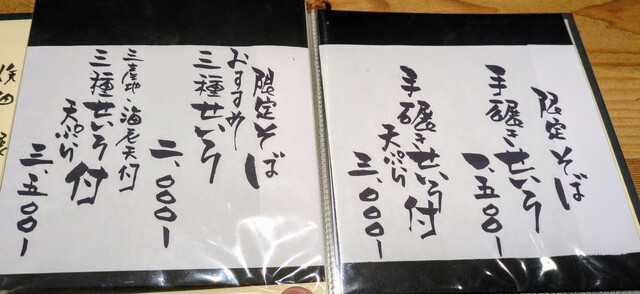 限定そば
手碾きせいろ
一、五〇〇ー
手碾きせいろ
天ぷら付
三、〇〇〇ー
限定そば
おすすめ
三種せいろ
二、〇〇〇ー
三種せいろ
天ぷら付
三、五〇〇ー